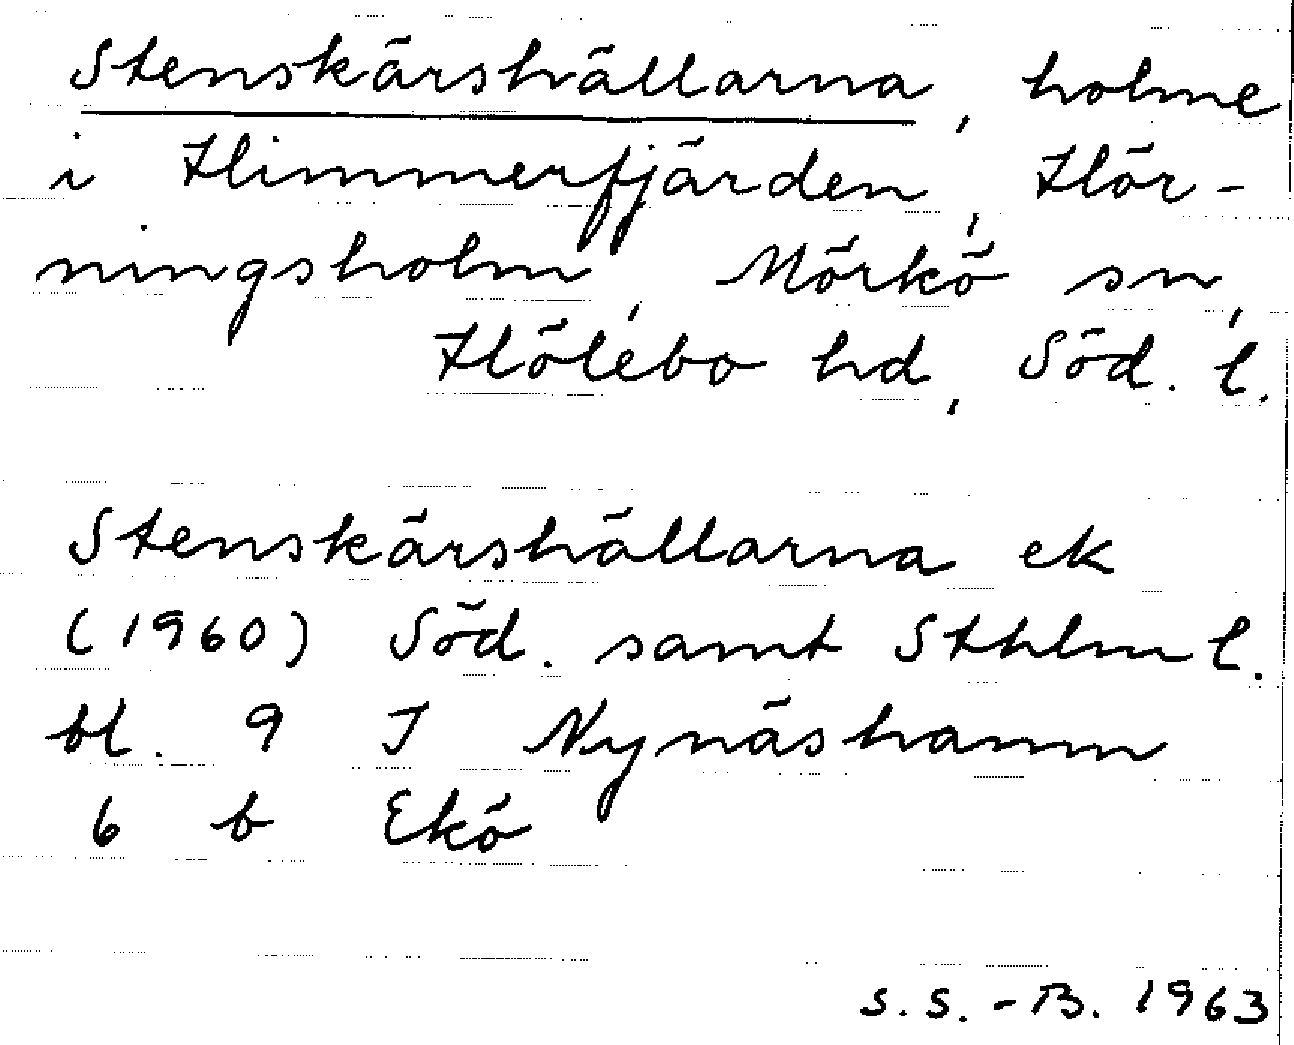 Stenskärshällarna, holme
i Himmerfjärden, Hör-
ningsholm, Mörkö sn,
Hölebo hd, Söd. l.
Stenskärshällarna ek
(1960) Söd. samt Sthlm l.
bl. 9 I Nynäshamn
6 b Ekö
S.S.-B. 1963